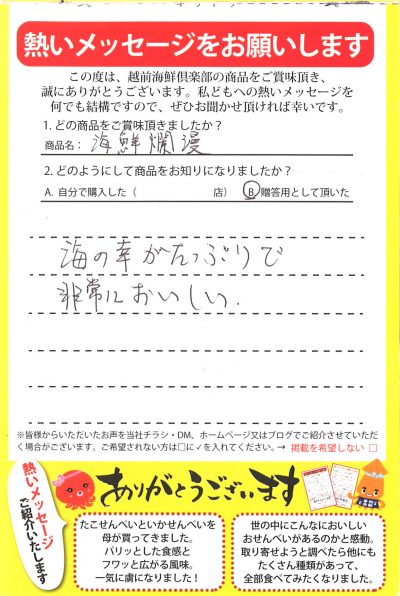 熱いメッセージをお願いします
この度は、越前海鮮倶楽部の商品をご賞味頂き、
誠にありがとうございます。私どもへの熱いメッセージを
何でも結構ですので、ぜひお聞かせ頂ければ幸いです。
1. どの商品をご賞味頂きましたか?
商品名: 海鮮爛漫
2. どのようにして商品をお知りになりましたか?
A. 自分で購入した( 店) B 贈答用として頂いた
海の幸がたっぷりで
非常においしい.
※皆様からいただいたお声を当社チラシ・DM、ホームページ又はブログでご紹介させていただ
く場合がございます。ご希望されない方は□に✓を入れてください。→ 掲載を希望しない □
熱いメッセージ
ご紹介いたします
ありがとうございます
たこせんべいといかせんべいを
母が買ってきました。
パリッとした食感と
フワッと広がる風味。
一気に虜になりました!
世の中にこんなにおいしい
おせんべいがあるのかと感動。
取り寄せようと調べたら他にも
たくさん種類があって、
全部食べてみたくなりました。